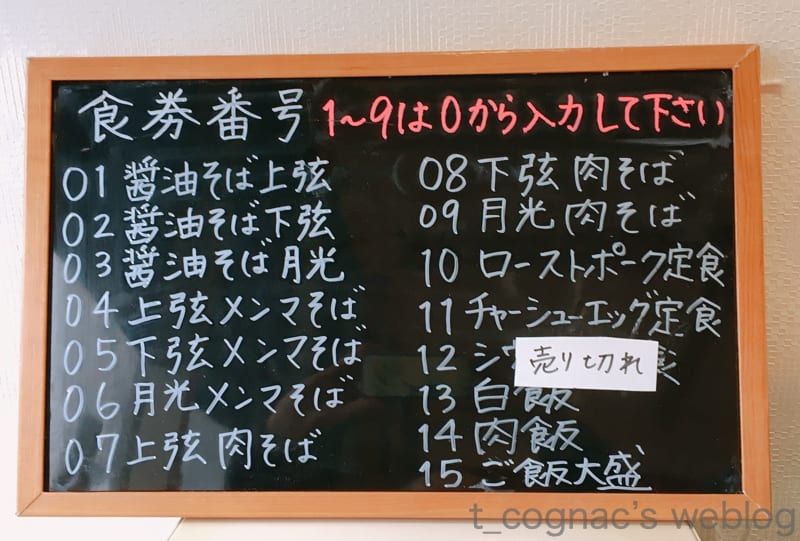 食券番号 1~9は0から入力して下さい
01 醤油そば上弦
02 醤油そば下弦
03 醤油そば月光
04 上弦メンマそば
05 下弦メンマそば
06 月光メンマそば
07 上弦肉そば
08 下弦肉そば
09 月光肉そば
10 ローストポーク定食
11 チャーシューエッグ定食
12 シウ
売り切れ
13 白飯
14 肉飯
15 ご飯大盛
t_cognac's weblog